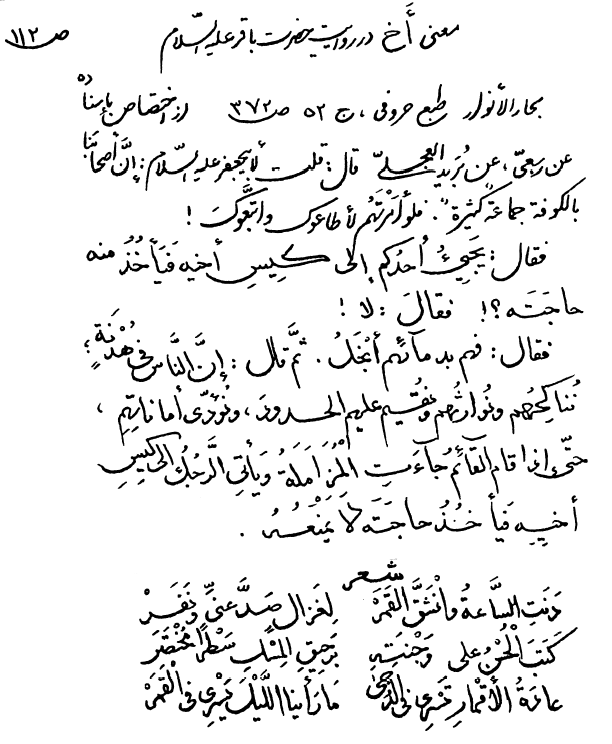 معنى أَخ در روایت حضرت باقر علیه السّلام ص ۱۱۲
بحار الأنوار طبع حروفى، ج ۵۲ ص ۳۷۲ از اختصاص بإسناده
عن رِبعىّ، عن بُرَيد العجلىّ قال: قلت لأبيجعفر عليه السّلام: إنَّ أصحابَنا
بالكوفة جماعةٌ كثيرة. فلو أمَرْتَهُم لأطاعوك واتَّبَعُوكَ!
فقال: يَجيىءُ أحدُكم إلى كيسِ أخيه فَيَأخُذُ منه
حاجَتَه؟! فقالَ: لا!
فقال: فهم بدمائهم أبْخَلُ. ثمَّ قال: إنَّ النَّاسَ فى هُدْنَةٍ؛
نُناكِحُهُم ونُوارِثُهُم ونُقيم عليهم الحدودَ، ونُؤَدّى أماناتِهِم،
حتّى إذا قام القآئم جاءَتِ الْمُزَامَلَةُ ويَأتِى الرَّجُلُ إلى كيسِ
أخيهِ فَيأخُذُ حاجَتَه لَا يَمْنَعُهُ.
شعر
دَنَتِ السَّاعةُ وانْشَقَّ القَمَرْ لِغَزالٍ صَدَّ عنّى ونَفَرْ
كَتَبَ الْحُسْنُ على وَجْنَتِهِ بِرَحيقِ المِسْكِ سَطْرًا مُخْتَصَرْ
عادةُ الأقْمارِ تَسْرِى فى الدُّجى مَا رَأينا اللَّيْلَ يَسْرِى فى الْقَمَرْ